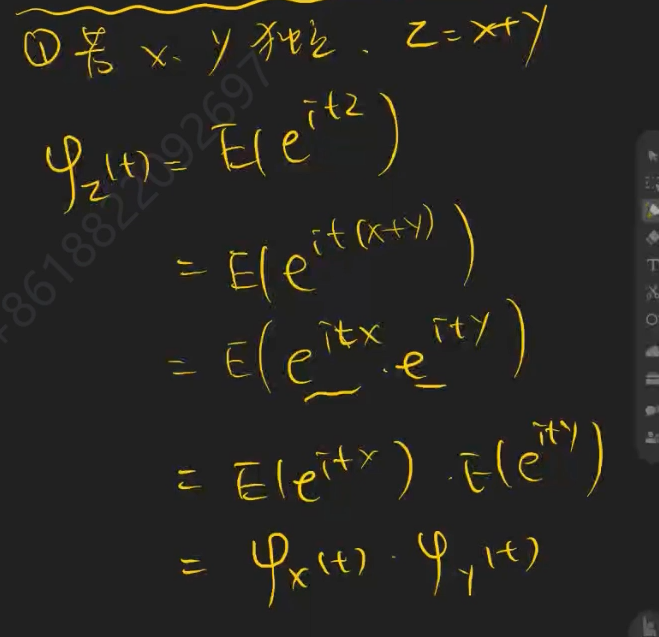 ① 若 x、y 独立. z=x+y
φ_z(t) = E(e^{itz})
= E(e^{it(x+y)})
= E(e^{itx} · e^{ity})
= E(e^{itx}) · E(e^{ity})
= φ_x(t) · φ_y(t)
+8618822092697